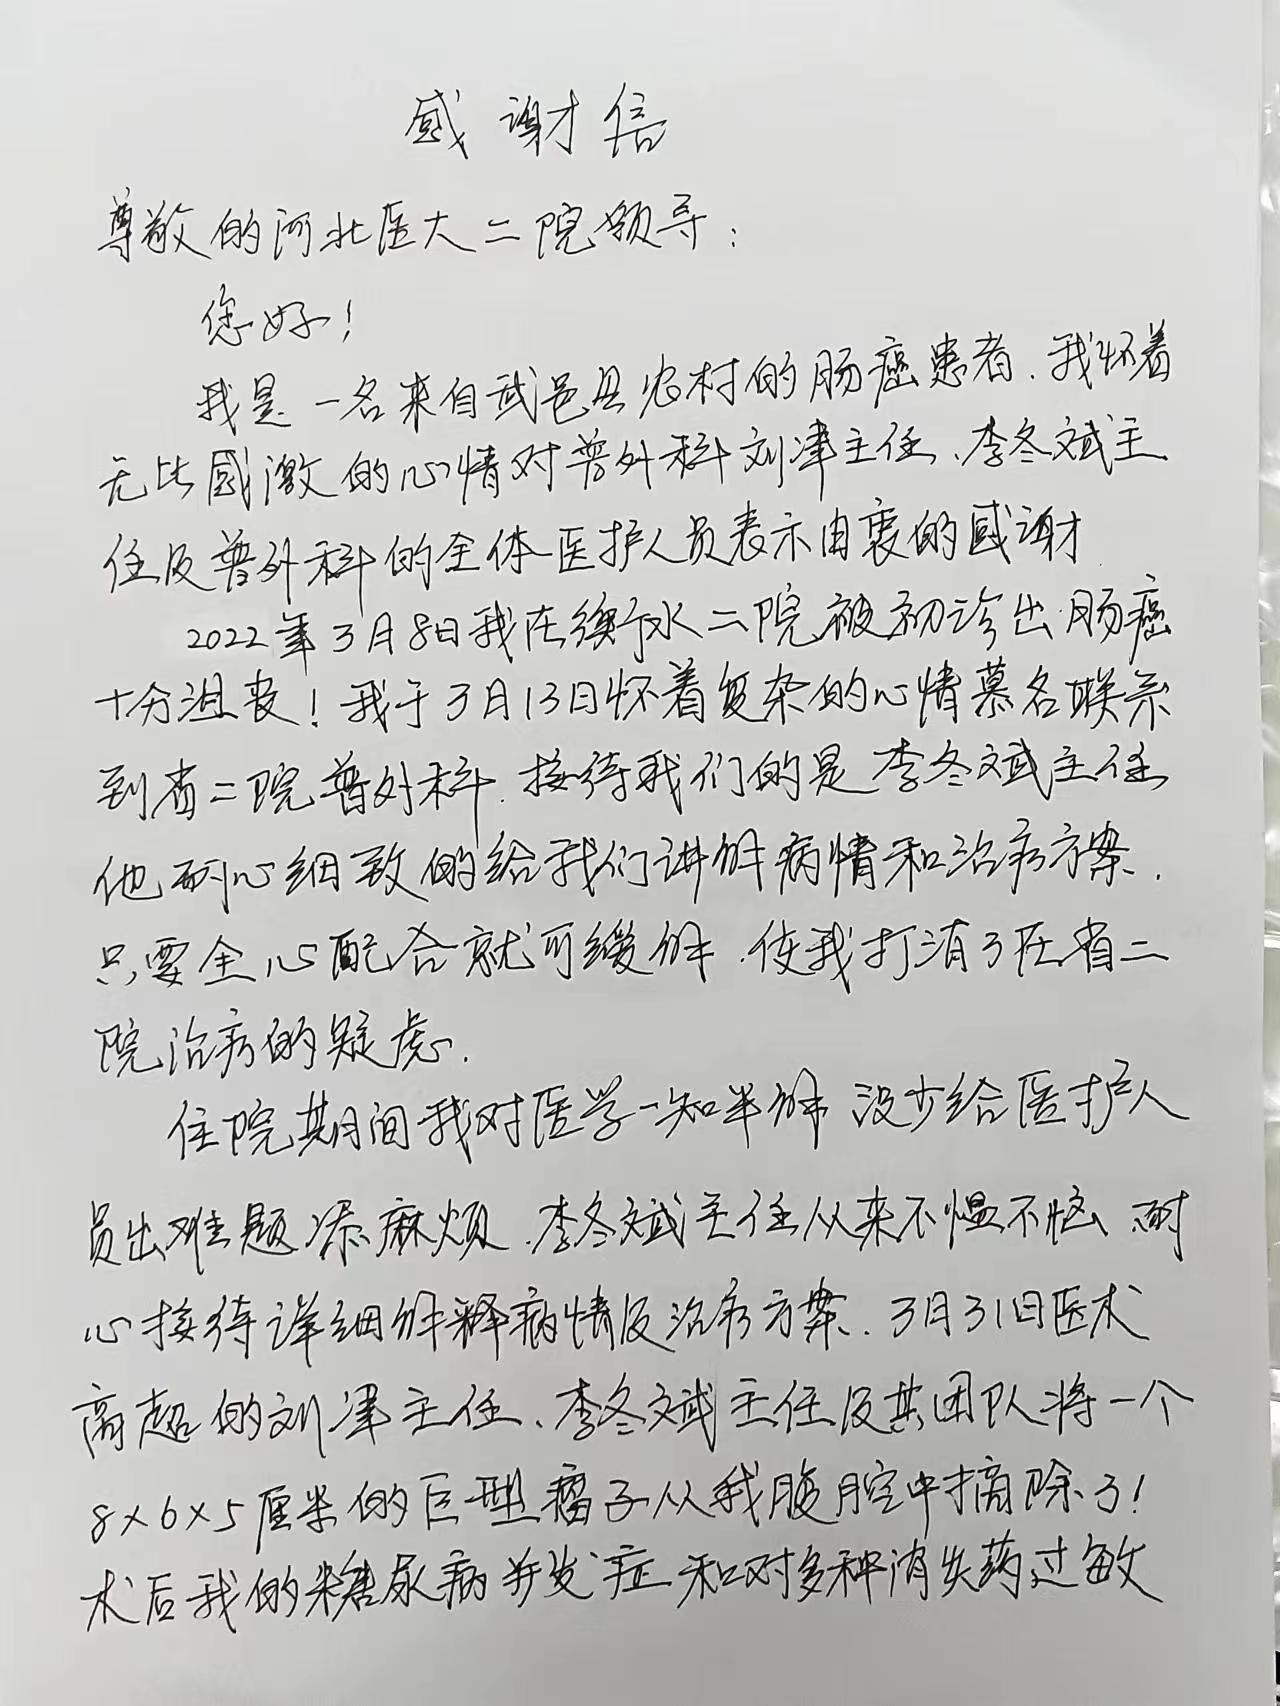 感谢信
尊敬的河北医大二院领导：
您好！
我是一名来自武邑县农村的肠癌患者.我怀着
无比感激的心情对普外科刘津主任、李冬斌主
任及普外科的全体医护人员表示由衷的感谢
2022年3月8日我在衡水二院被初诊出肠癌
十分沮丧！我于3月13日怀着复杂的心情慕名联系
到省二院普外科.接待我们的是李冬斌主任
他耐心细致的给我们讲解病情和治疗方案.
只要全心配合就可缓解.使我打消了在省二
院治疗的疑虑.
住院期间我对医学一知半解 没少给医护人
员出难题添麻烦.李冬斌主任从来不愠不恼 耐
心接待详细解释病情及治疗方案.3月31日医术
高超的刘津主任、李冬斌主任及其团队将一个
8×6×5厘米的巨型瘤子从我腹腔中摘除了！
术后我的糖尿病并发症和对多种消炎药过敏